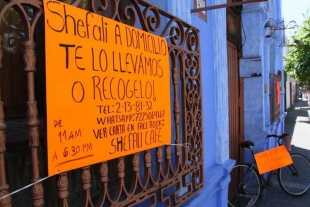 Shefali A DOMICILIO
TE LO LLEVAMOS
O RECOGELO!
TEL: 2-13-81-32
VER CARTA EN FACE BOOK:
SHEFALI CAFÉ
DE
11 AM
A 6:30 PM